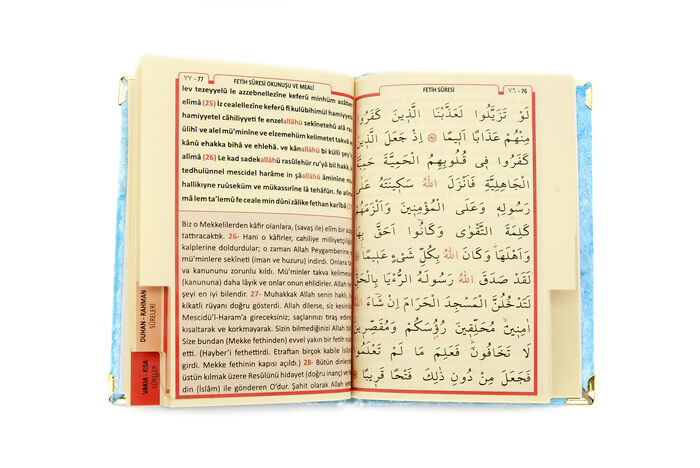 ٧٧ - 77
FETİH SÛRESİ OKUNUŞU VE MEALİ
lev tezeyyelû le azzebnellezîne keferû minhüm azâben
elîmâ (25) İz cealellezîne keferû fî kulûbihimül hamiyyete
hamiyyetel câhiliyyeti fe enzelallâhü sekînetehû alâ ra
ûlihî ve alel mü'minîne ve elzemehüm kelimetet takvâ v
kânû ehakka bihâ ve ehlehâ. ve kânallâhü bi külli şey'i
(26) Le kad sadekallâhü rasûlehür ru'yâ bil hakk
tedhulünnel mescidel harâme in şâallâhü âminîne
hallikıyne ruûseküm ve mükassırîne lâ tehâfûn. fe alim
mâ lem ta'lemû fe ceale min dûni zâlike fethan karîbâ
Biz o Mekkelilerden kâfir olanlara, (savaş ile) elîm bir azap
tattıracaktık. 26- Hani o kâfirler, cahiliye milliyetçiliğ
kalplerine doldurdular; o zaman Allah Peygamberine
mü'minlere sekîneti (iman ve huzuru) indirdi. Onlara ta
va kanununu zorunlu kıldı. Mü'minler takva kelimes
(kanununa) daha lâyık ve onlar onun ehlidirler. Allah he
şeyi en iyi bilendir. 27- Muhakkak Allah senin haklı, t
kikatli rüyanı doğru gösterdi. Allah dilerse, siz elbette
Mescidü'l-Haram'a gireceksiniz; saçlarınızı tıraş ede
kısaltarak ve korkmayarak. Sizin bilmediğinizi Allah bil
Size bundan (Mekke fethinden) evvel yakın bir fethin
(Hayber'i fethettirdi. Etraftan birçok kabile İslâm
girdi. Mekke fethinin kapısı açıldı.) 28- Bütün dinleri
üstün kılmak üzere Resûlünü hidayet (doğru inanç) ve h
din (İslâm) ile gönderen O'dur. Şahit olarak Allah yet
DUHAN - RAHMAN
SÛRELERİ
VAKIA - KISA
SÛRELER
FETİH SÛRESİ
٧٦ - 76
لَوْ تَزَيَّلُوا لَعَذَّبْنَا الَّذِينَ كَفَرُوا
مِنْهُمْ عَذَابًا اَلِيمًا اِذْ جَعَلَ الَّذِينَ
كَفَرُوا فِى قُلُوبِهِمُ الْحَمِيَّةَ حَمِيَّةَ
الْجَاهِلِيَّةِ فَاَنْزَلَ اللّٰهُ سَكِينَتَهُ عَلٰى
رَسُولِهِ وَعَلَى الْمُؤْمِنِينَ وَاَلْزَمَهُمْ
كَلِمَةَ التَّقْوٰى وَكَانُوا اَحَقَّ بِهَا
وَاَهْلَهَا وَكَانَ اللّٰهُ بِكُلِّ شَىْءٍ عَلِيمًا
لَقَدْ صَدَقَ اللّٰهُ رَسُولَهُ الرُّءْيَا بِالْحَقِّ
لَتَدْخُلُنَّ الْمَسْجِدَ الْحَرَامَ اِنْ شَاءَ اللّٰهُ
اٰمِنِينَ مُحَلِّقِينَ رُؤُسَكُمْ وَمُقَصِّرِينَ
لَا تَخَافُونَ فَعَلِمَ مَا لَمْ تَعْلَمُوا
فَجَعَلَ مِنْ دُونِ ذٰلِكَ فَتْحًا قَرِيبًا